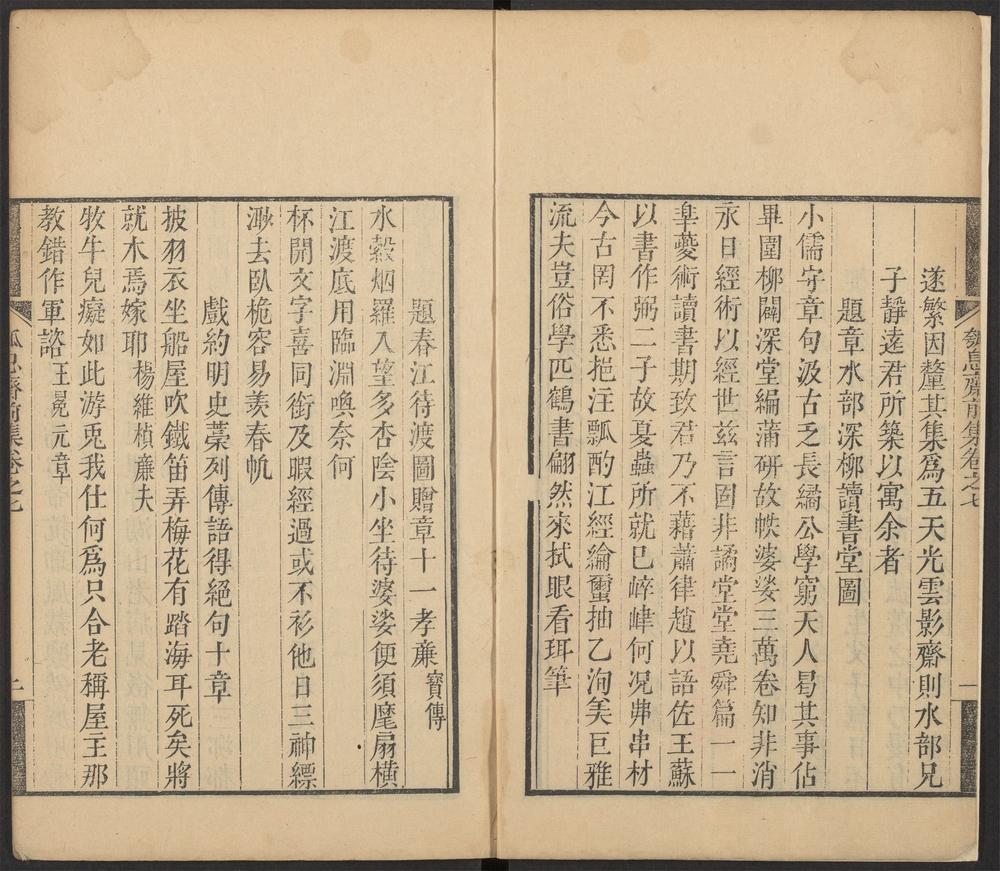 芻息齋前集卷之七
一
遂繁因釐其集爲五天光雲影齋則水部兄
子靜遠君所築以寓余者
題章水部深柳讀書堂圖
小儒守章句汲古乏長繘公學窮天人曷其事佔
畢圍柳闢深堂編蒲研故帙婆娑三萬卷知非消
永日經術以經世兹言固非譎堂堂堯舜篇一一
臯夔術讀書期致君乃不藉蕭律趙以語佐王蘇
以書作弼二子故夏蟲所就已崪嵂何况弗串材
今古罔不悉挹注瓢酌江經綸蠒抽乙洵美巨雅
流夫豈俗學匹鶴書翩然來拭眼看珥筆
題春江待渡圖贈章十一孝廉寳傳
水縠烟羅入望多杏陰小坐待婆娑便須麾扇橫
江渡底用臨淵喚奈何
杯開文字喜同銜及暇經過或不衫他日三神縹
渺去臥桅容易羡春帆
戲約明史藁列傳語得絕句十章
披羽衣坐船屋吹鐵笛弄梅花有踏海耳死矣將
就木焉嫁耶楊維楨廉夫
牧牛兒癡如此游兎我仕何爲只合老稱屋主那
教錯作軍諮王冕元章
息齋前集卷之七